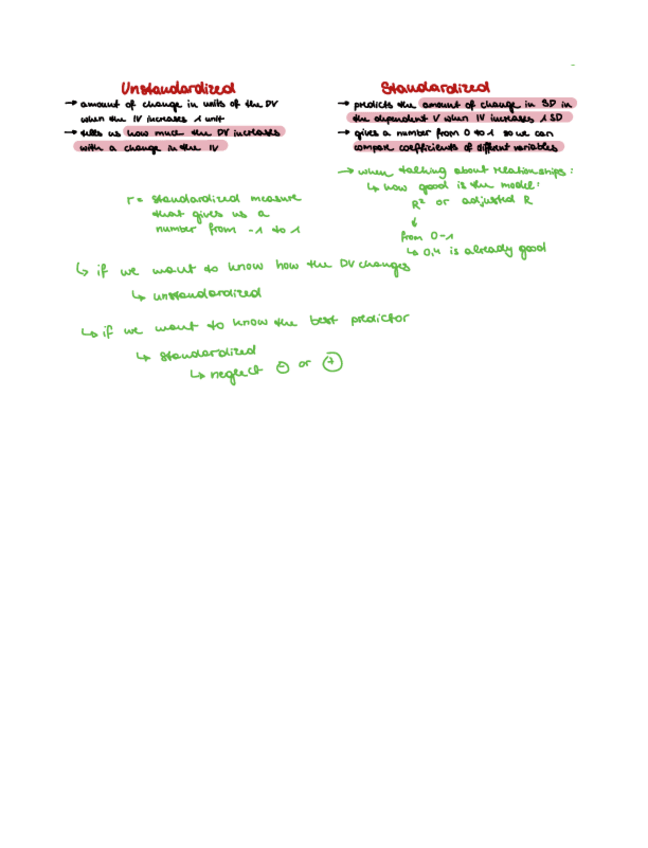 Unstandardized
→ amount of change in units of the DV
when the IV increases 1 unit
→ tells us how much the DV increases
with a change in the IV
Standardized
→ predicts the amount of change in SD in
the dependent V when IV increases 1 SD
→ gives a number from 0 to 1 so we can
compare coefficients of different variables
→ when talking about relationships:
↳ how good is the model:
R² or adjusted R
↓
from 0-1
↳ 0,4 is already good
r = standardized measure
that gives us a
number from -1 to 1
↳ if we want to know how the DV changes
↳ unstandardized
↳ if we want to know the best predictor
↳ standardized
↳ neglect ⊖ or ⊕